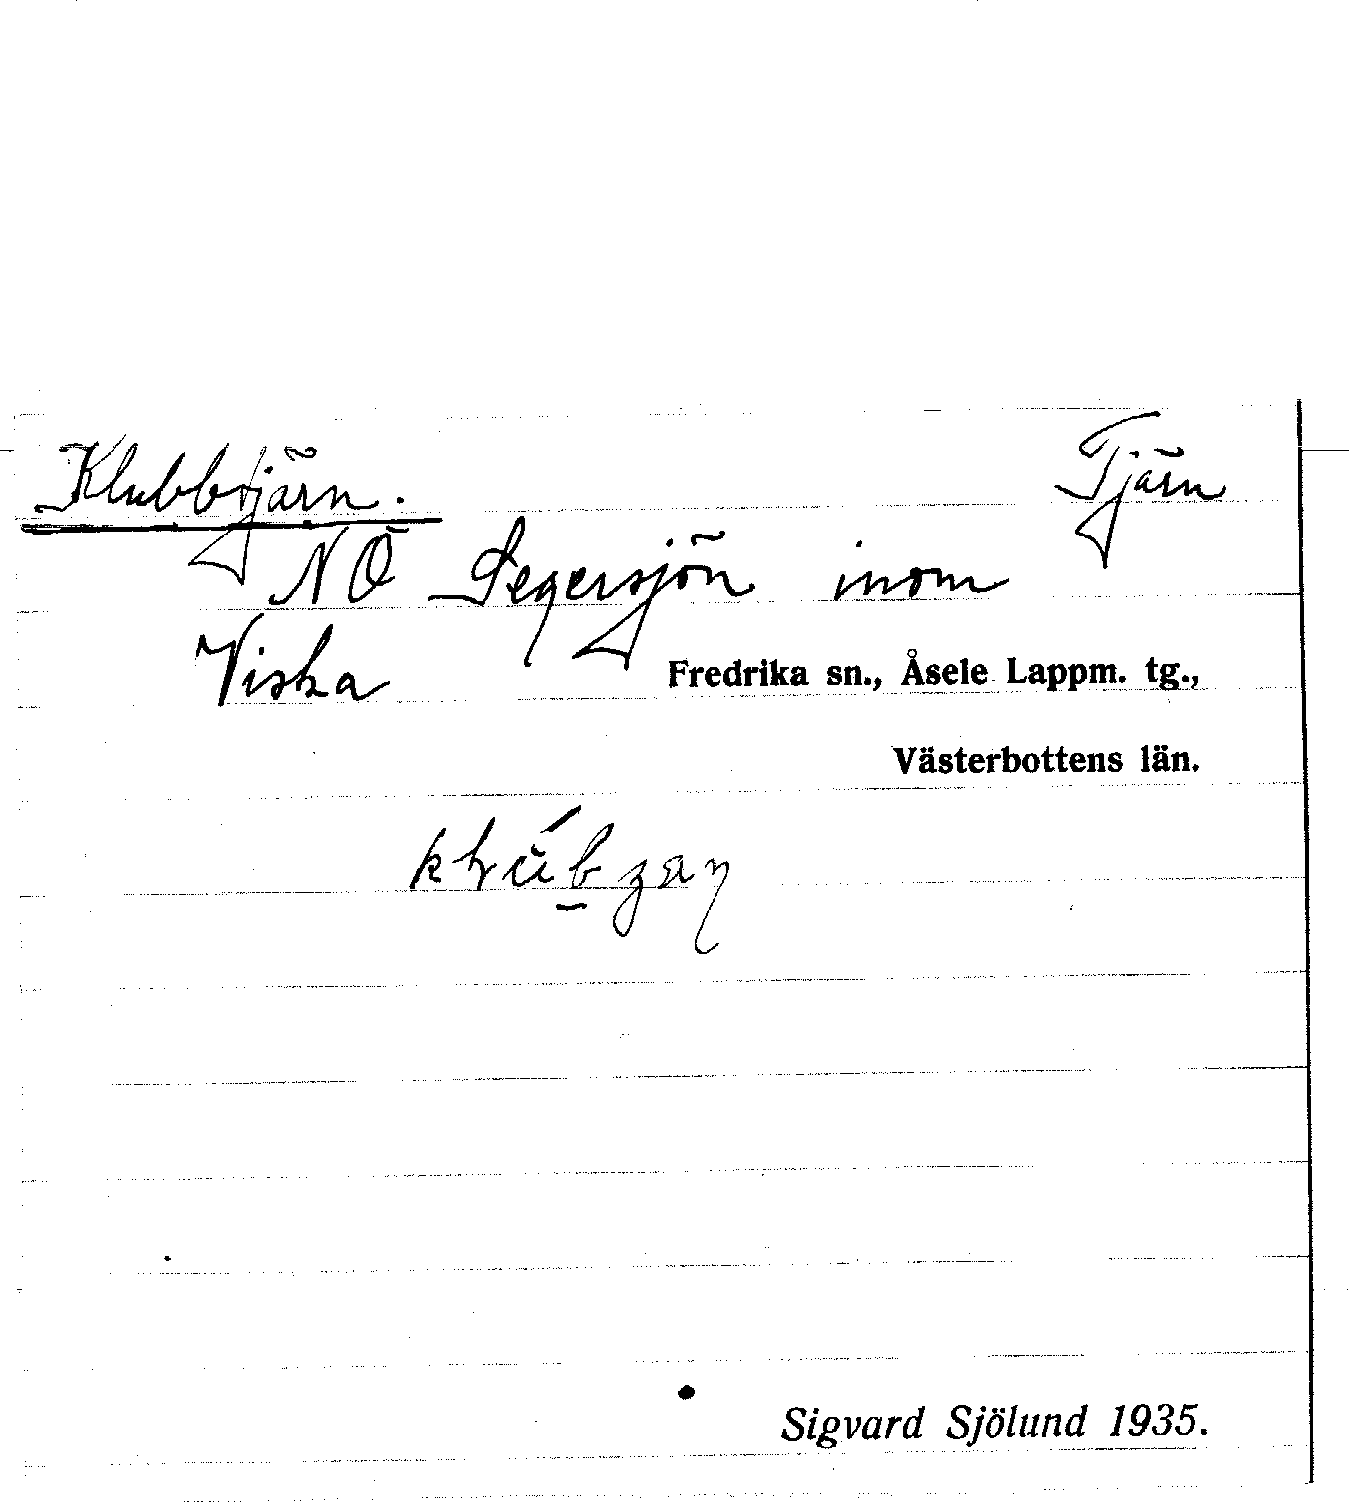 Klubbtjärn. Tjärn
NÖ Segersjön inom
Viska
Fredrika sn., Åsele Lappm. tg.,
Västerbottens län.
Sigvard Sjölund 1935.